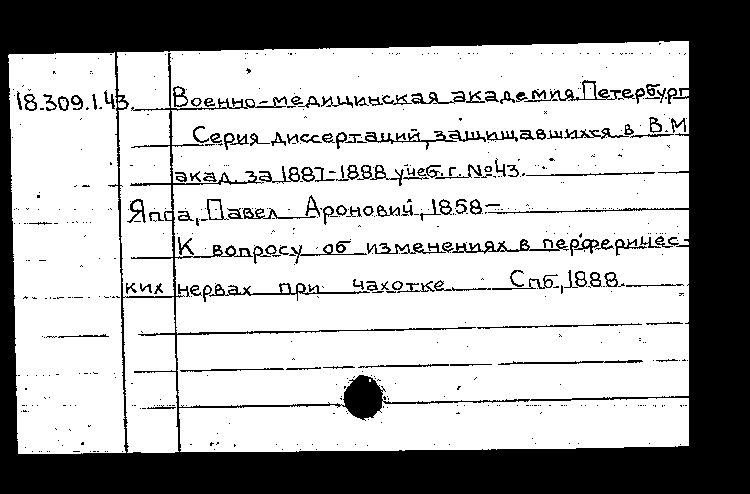 18.309.1.43. Военно-медицинская академия. Петербург
Серия диссертаций, защищавшихся в В.М
акад. за 1887-1888 учеб. г. №43.
Павел Ароновий, 1858-
К вопросу об изменениях в перферичес-
ких нервах при чахотке. Спб, 1888.